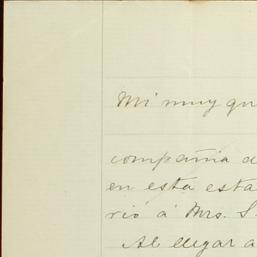 Mi muy qu
compañia d
en esta esta
rió á Mrs. S.
Al llegar a